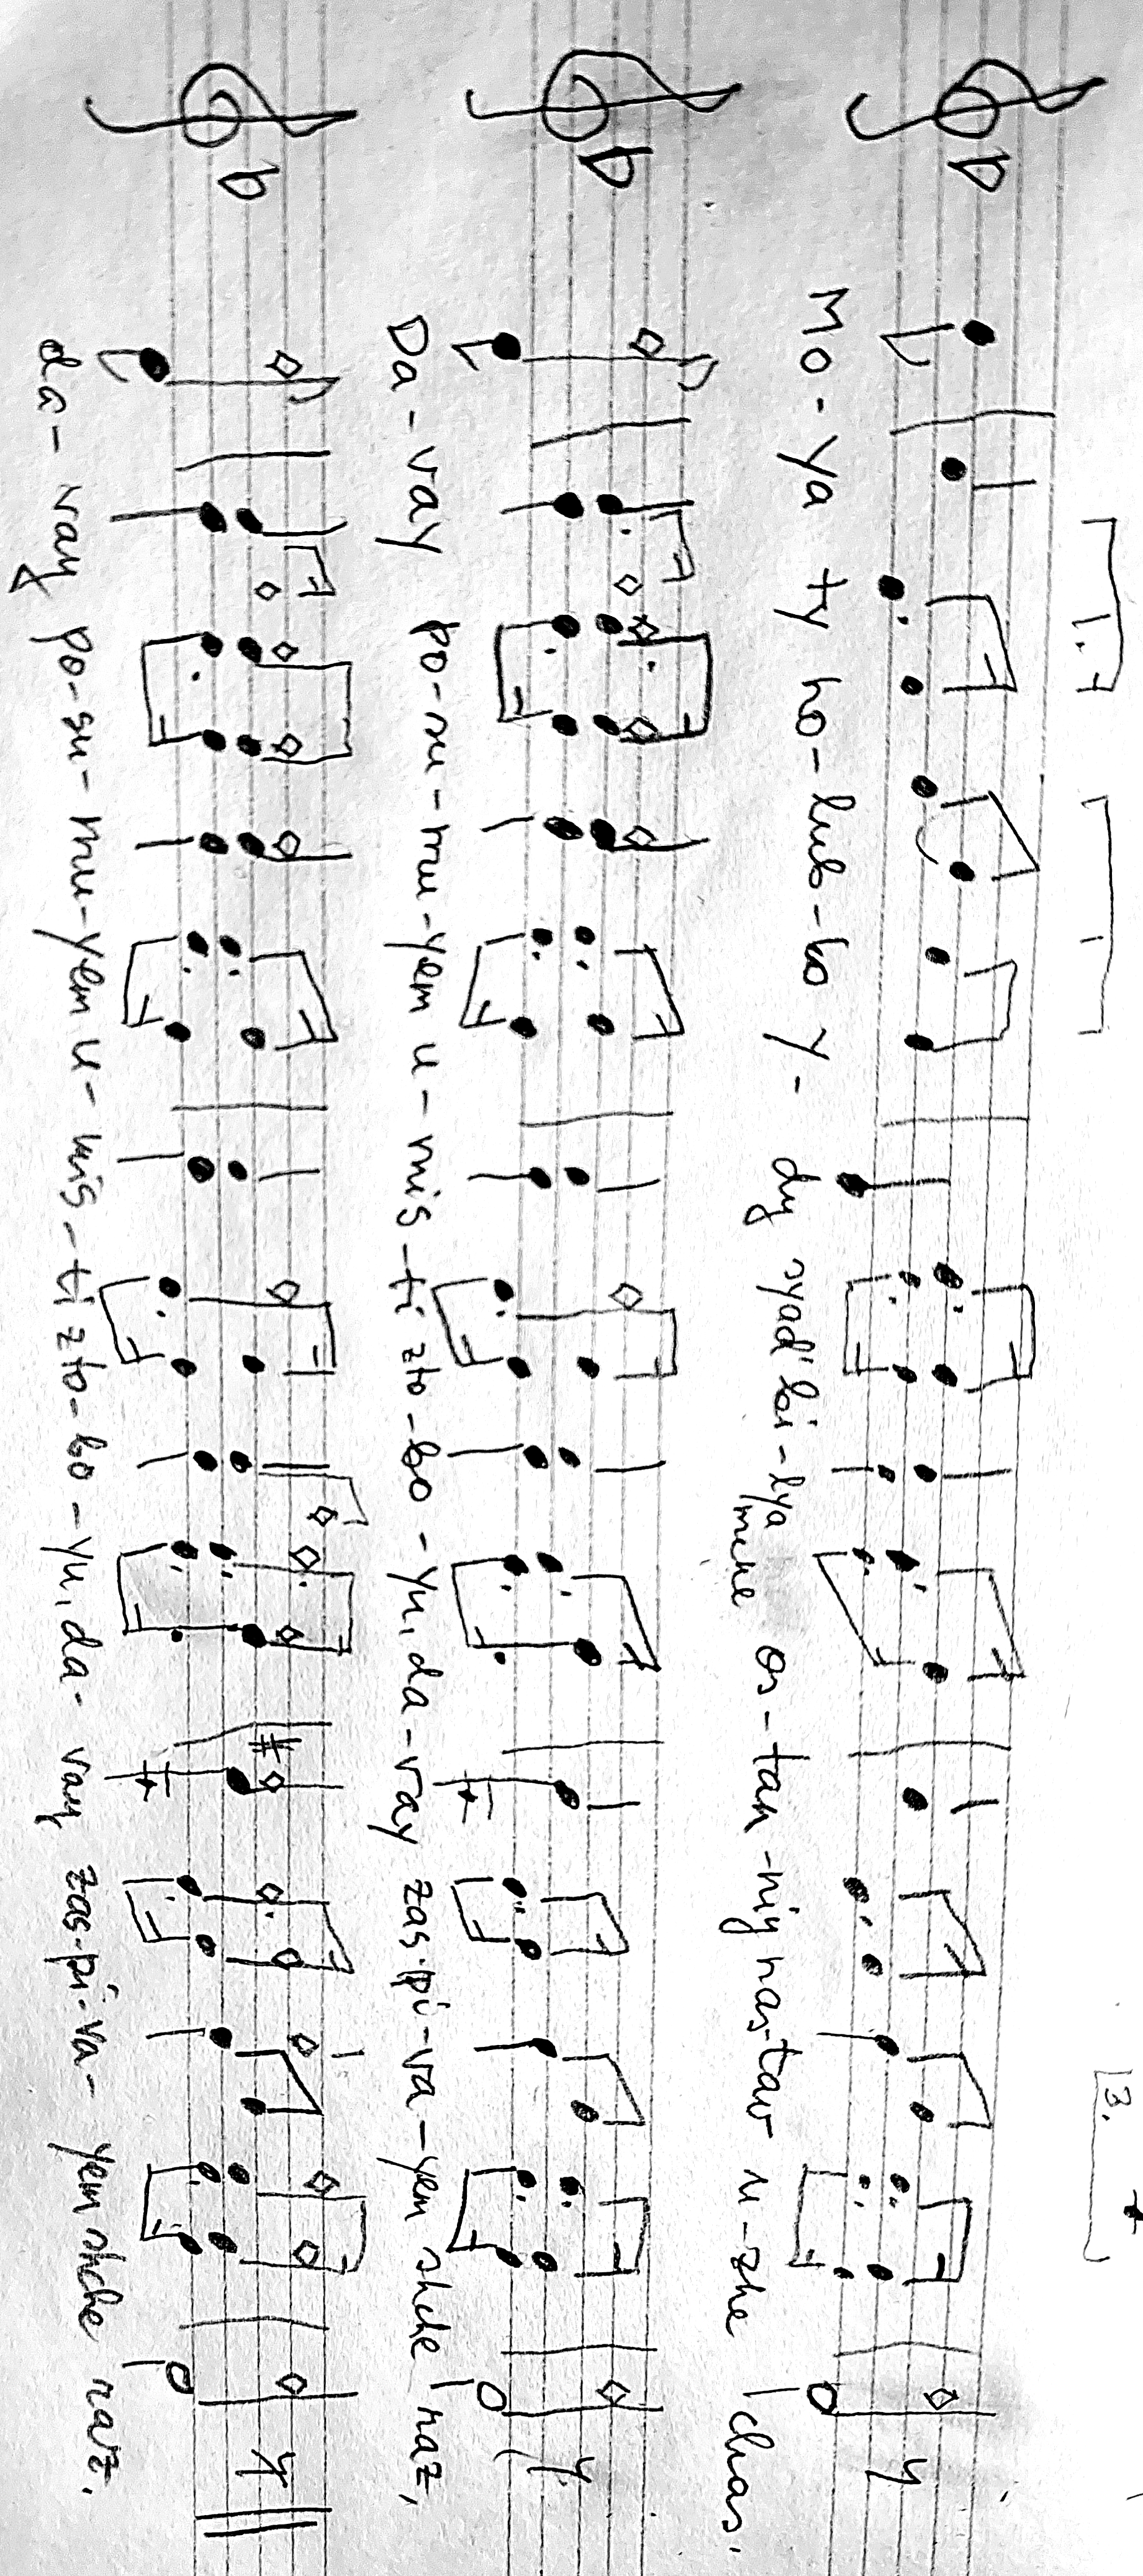 1.
3.
Mo - ya ty ho - lub - ko y - dy syad' bi - lya mene os - tan - niy nas - tav u - zhe chas.
Da - vay po - su - mu - yem u - mis - ti z to - bo - yu, da - vay zas - pi - va - yem shche raz,
da - vay po - su - mu - yem u - mis - ti z to - bo - yu, da - vay zas - pi - va - yem shche raz.